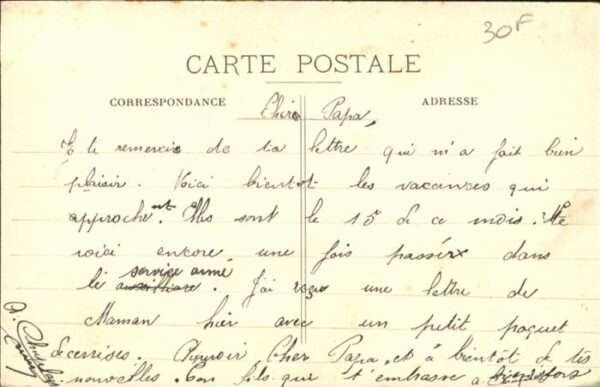 30F
CARTE POSTALE
CORRESPONDANCE
ADRESSE
Chère Papa,
Je te remercie de ta lettre qui m'a fait bien
plaisir. Voici bientot les vacances qui
approchent. Elles sont le 15 de ce mois. Te
voici encore une fois passér dans
le service armé auxiliaire. J'ai reçu une lettre de
Maman hier avec un petit paquet
de cerises. Cher Papa, et à bientôt de tes
nouvelles. Ton fils qui t'embrasse